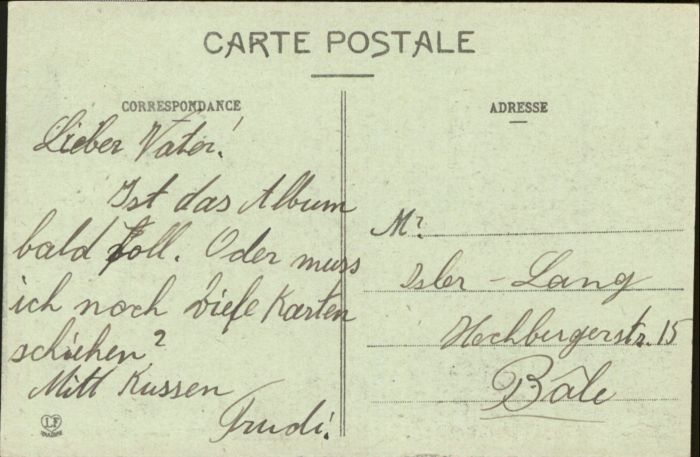 CARTE POSTALE
CORRESPONDANCE
Lieber Vater!
Ist das Album
bald foll. Oder muss
ich noch viele Karten
schiehen?
Mitt Kussen
Trudi.
LF
ADRESSE
Mr
Isler - Lang
Hochbergerstr. 15
Bâle